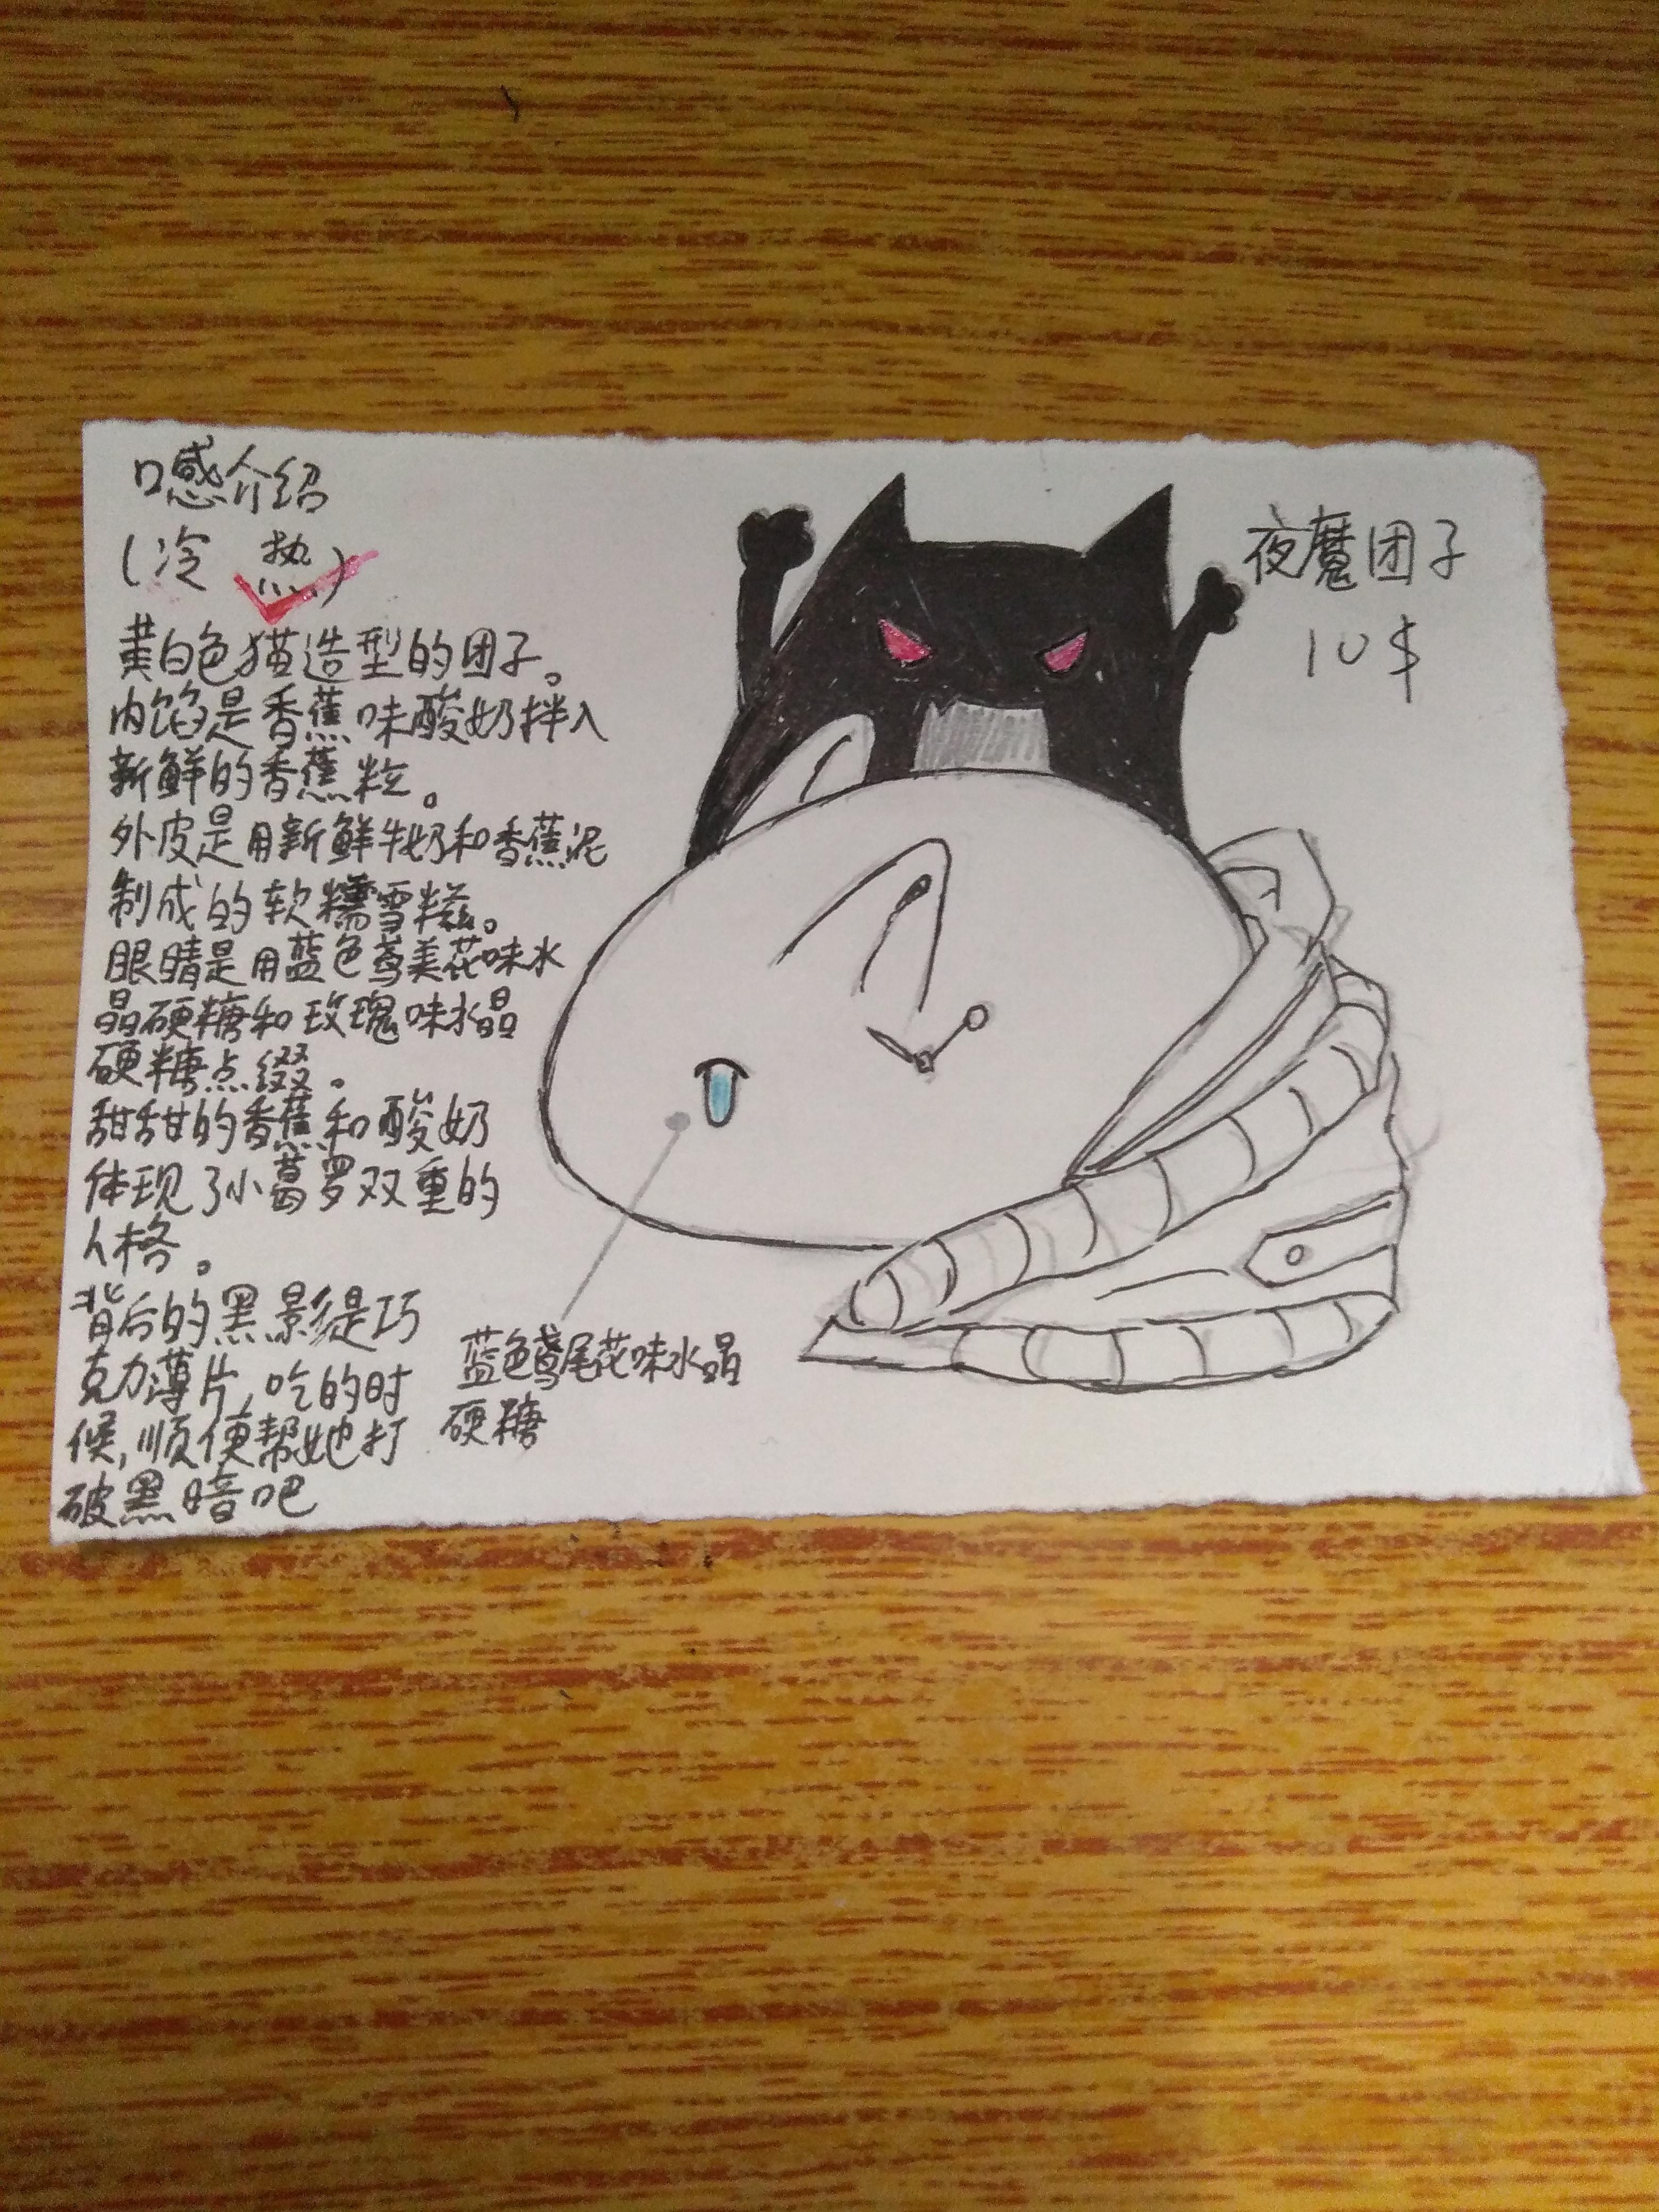 口感介绍
(冷 热)
黄白色猫造型的团子。
内馅是香蕉味酸奶拌入
新鲜的香蕉粒。
外皮是用新鲜牛奶和香蕉泥
制成的软糯雪糍。
眼睛是用蓝色鸢美花味水
晶硬糖和玫瑰味水晶
硬糖点缀。
甜甜的香蕉和酸奶
体现了小葛罗双重的
人格。
背后的黑影是巧
克力薄片,吃的时
候,顺便帮她打
破黑暗吧
蓝色鸢尾花味水晶
硬糖
夜魔团子
10$